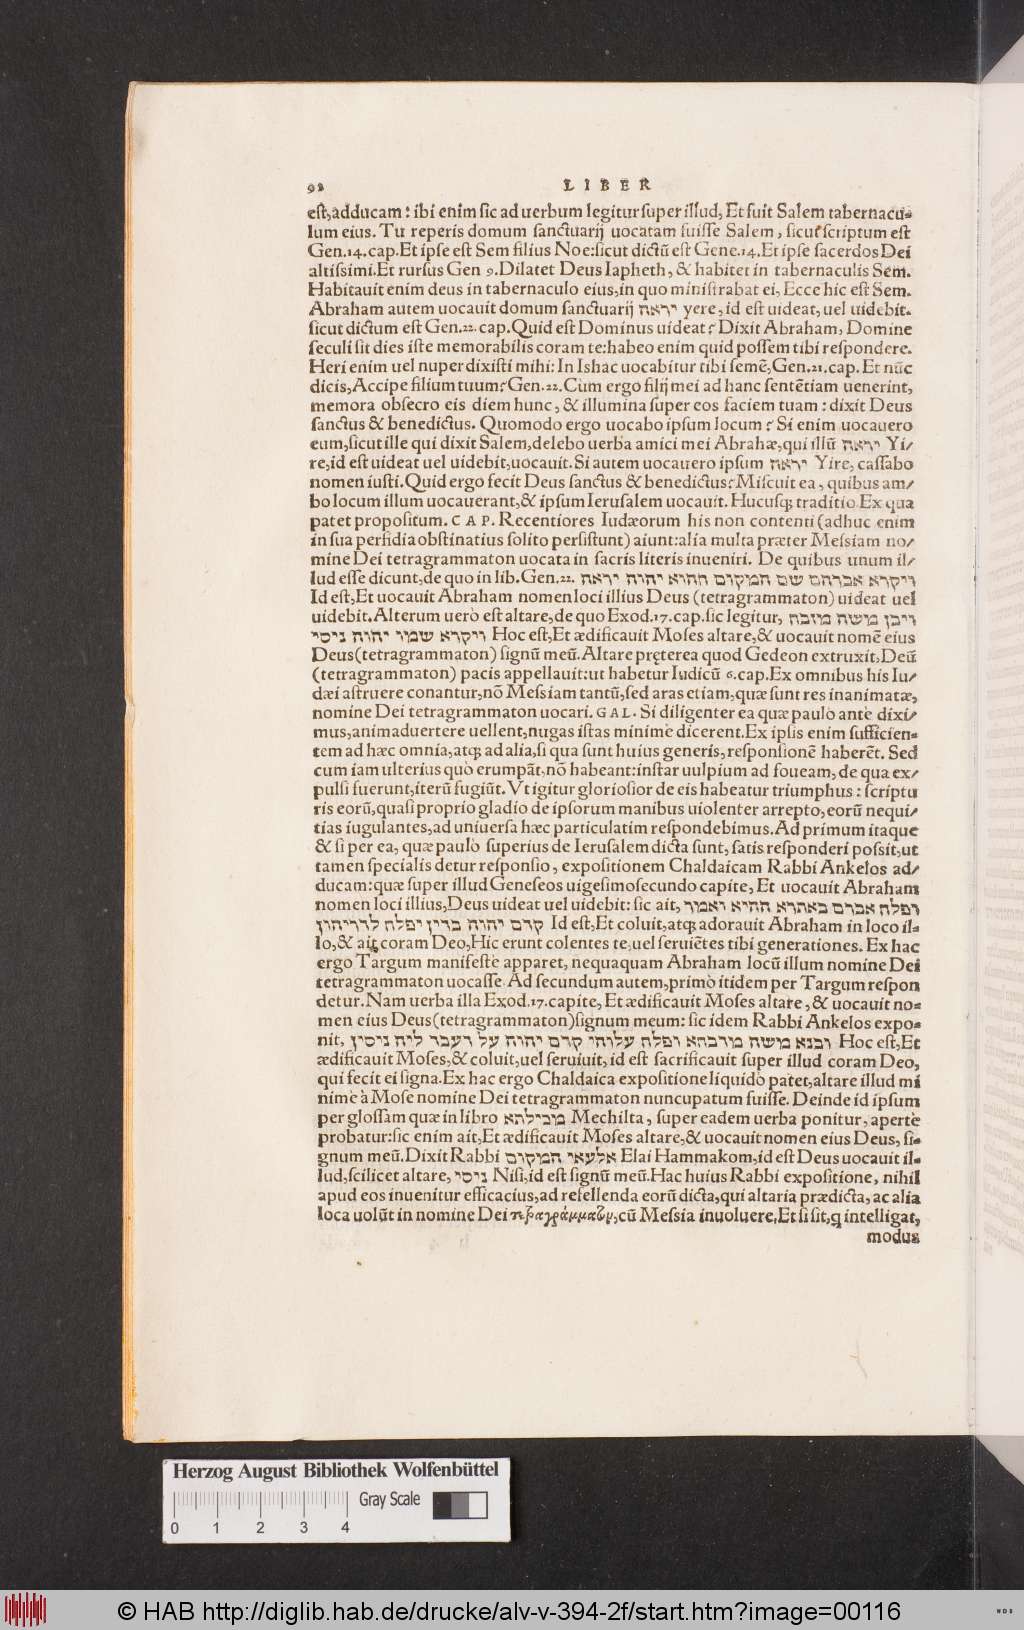 98 LIBER
est, adducam: ibi enim sic ad uerbum legitur super illud, Et fuit Salem tabernacu-
lum eius. Tu reperis domum sanctuarij uocatam fuisse Salem, sicut scriptum est
Gen.14.cap. Et ipse est Sem filius Noe: sicut dictũ est Gene.14. Et ipse sacerdos Dei
altissimi. Et rursus Gen 9. Dilatet Deus Iapheth, & habitet in tabernaculis Sem.
Habitauit enim deus in tabernaculo eius, in quo ministrabat ei, Ecce hic est Sem.
Abraham autem uocauit domum sanctuarij יראה yere, id est uideat, uel uidebit.
sicut dictum est Gen.22.cap. Quid est Dominus uideat? Dixit Abraham, Domine
seculi sit dies iste memorabilis coram te: habeo enim quid possem tibi respondere.
Heri enim uel nuper dixisti mihi: In Ishac uocabitur tibi semẽ, Gen.21.cap. Et nũc
dicis, Accipe filium tuum? Gen.22. Cum ergo filij mei ad hanc sentẽtiam uenerint,
memora obsecro eis diem hunc, & illumina super eos faciem tuam: dixit Deus
sanctus & benedictus. Quomodo ergo uocabo ipsum locum? Si enim uocauero
eum, sicut ille qui dixit Salem, delebo uerba amici mei Abrahæ, qui illũ יראה Yi-
re, id est uideat uel uidebit, uocauit. Si autem uocauero ipsum יראה Yire, cassabo
nomen iusti. Quid ergo fecit Deus sanctus & benedictus? Miscuit ea, quibus am-
bo locum illum uocauerant, & ipsum Ierusalem uocauit. Hucusq; traditio. Ex qua
patet propositum. CAP. Recentiores Iudæorum his non contenti (adhuc enim
in sua perfidia obstinatius solito persistunt) aiunt: alia multa præter Messiam no-
mine Dei tetragrammaton uocata in sacris literis inueniri. De quibus unum il-
lud esse dicunt, de quo in lib. Gen.22. ויקרא אברהם שם המקום ההיא יהוה יראה
Id est, Et uocauit Abraham nomen loci illius Deus (tetragrammaton) uideat uel
uidebit. Alterum uerò est altare, de quo Exod.17.cap. sic legitur, ויבן משה מזבח
ויקרא שמו יהוה ניסי Hoc est, Et ædificauit Moses altare, & uocauit nomẽ eius
Deus (tetragrammaton) signũ meũ. Altare pręterea quod Gedeon extruxit, Deũ
(tetragrammaton) pacis appellauit: ut habetur Iudicũ 6.cap. Ex omnibus his Iu-
dæi astruere conantur, nõ Messiam tantũ, sed aras etiam, quæ sunt res inanimatæ,
nomine Dei tetragrammaton uocari. GAL. Si diligenter ea quæ paulò antè dixi-
mus, animaduertere uellent, nugas istas minimè dicerent. Ex ipsis enim sufficien-
tem ad hæc omnia, atq; ad alia, si qua sunt huius generis, responsionẽ haberẽt. Sed
cum iam ulterius quò erumpãt, nõ habeant: instar uulpium ad foueam, de qua ex-
pulsi fuerunt, iterũ fugiũt. Vt igitur gloriosior de eis habeatur triumphus: scriptu
ris eorũ, quasi proprio gladio de ipsorum manibus uiolenter arrepto, eorũ nequi-
tias iugulantes, ad uniuersa hæc particulatim respondebimus. Ad primum itaque
& si per ea, quæ paulò superius de Ierusalem dicta sunt, satis responderi possit, ut
tamen specialis detur responsio, expositionem Chaldaicam Rabbi Ankelos ad-
ducam: quæ super illud Geneseos uigesimosecundo capite, Et uocauit Abraham
nomen loci illius, Deus uideat uel uidebit: sic ait, ופלח אברם באתרא ההיא ואמר
קדם יהוה ברין יפלח לדריהון Id est, Et coluit, atq; adorauit Abraham in loco il-
lo, & ait coram Deo, Hic erunt colentes te, uel seruiẽtes tibi generationes. Ex hac
ergo Targum manifestè apparet, nequaquam Abraham locũ illum nomine Dei
tetragrammaton uocasse. Ad secundum autem, primò itidem per Targum respon
detur. Nam uerba illa Exod.17.capite, Et ædificauit Moses altare, & uocauit no-
men eius Deus (tetragrammaton) signum meum: sic idem Rabbi Ankelos expo-
nit, ובנא משה מדבחא ופלח עלוהי קדם יהוה על דעבד ליה ניסין Hoc est, Et
ædificauit Moses, & coluit, uel seruiuit, id est sacrificauit super illud coram Deo,
qui fecit ei signa. Ex hac ergo Chaldaica expositione liquidò patet, altare illud mi
nimè à Mose nomine Dei tetragrammaton nuncupatum fuisse. Deinde id ipsum
per glossam quæ in libro מכילתא Mechilta, super eadem uerba ponitur, apertè
probatur: sic enim ait, Et ædificauit Moses altare, & uocauit nomen eius Deus, si-
gnum meũ. Dixit Rabbi אלעאי המקום Elai Hammakom, id est Deus uocauit il-
lud, scilicet altare, ניסי Nisi, id est signũ meũ. Hac huius Rabbi expositione, nihil
apud eos inuenitur efficacius, ad refellenda eorũ dicta, qui altaria prædicta, ac alia
loca uolũt in nomine Dei τετραγράμματον, cũ Messia inuoluere, Et si sit, q intelligat,
modus
Herzog August Bibliothek Wolfenbüttel
Gray Scale
0 1 2 3 4
© HAB http://diglib.hab.de/drucke/alv-v-394-2f/start.htm?image=00116